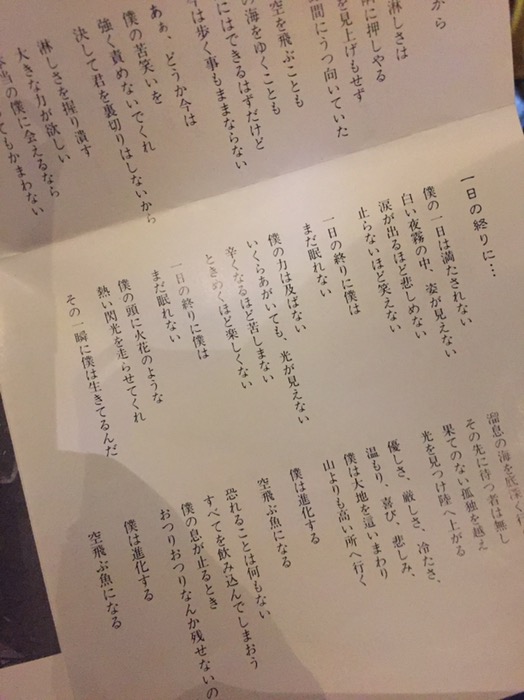 から
淋しさは
に押しやる
を見上げもせず
間にうつ向いていた
空を飛ぶことも
の海をゆくことも
にはできるはずだけど
は歩く事もままならない
あぁ、どうか今は
僕の苦笑いを
強く責めないでくれ
決して君を裏切りはしないから
淋しさを握り潰す
大きな力が欲しい
本当の僕に会えるなら
てもかまわない
一日の終りに…
僕の一日は満たされない
白い夜霧の中、姿が見えない
涙が出るほど悲しめない
止らないほど笑えない
一日の終りに僕は
まだ眠れない
僕の力は及ばない
いくらあがいても、光が見えない
辛くなるほど苦しまない
ときめくほど楽しくない
一日の終りに僕は
まだ眠れない
僕の頭に火花のような
熱い閃光を走らせてくれ
その一瞬に僕は生きてるんだ
溜息の海を底深く
その先に待つ者は無し
果てのない孤独を越え
光を見つけ陸へ上がる
優しさ、厳しさ、冷たさ、
温もり、喜び、悲しみ、
僕は大地を這いまわり
山よりも高い所へ行く
僕は進化する
空飛ぶ魚になる
恐れることは何もない
すべてを飲み込んでしまおう
僕の息が止るとき
おつりおつりなんか残せないの
僕は進化する
空飛ぶ魚になる